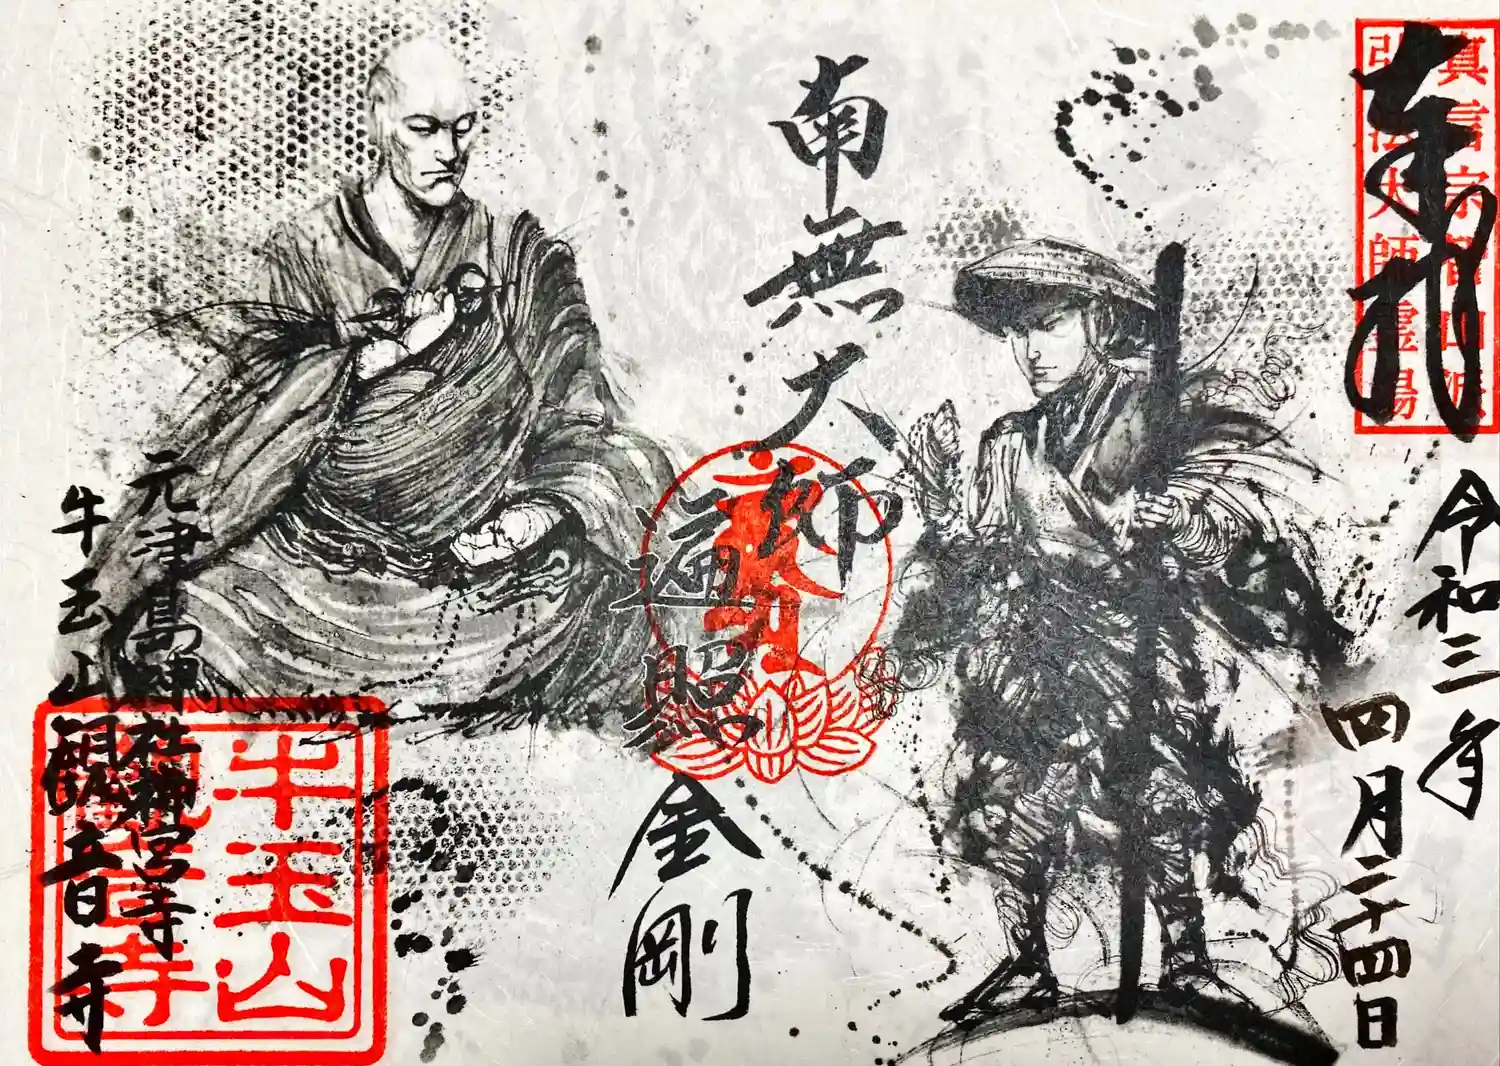 奉拝
真言宗智山派
弘法大師霊場
令和三年
四月二十四日
南無大師
遍照
金剛
元津島神社神宮寺
牛玉山観音寺
牛玉山
観音寺